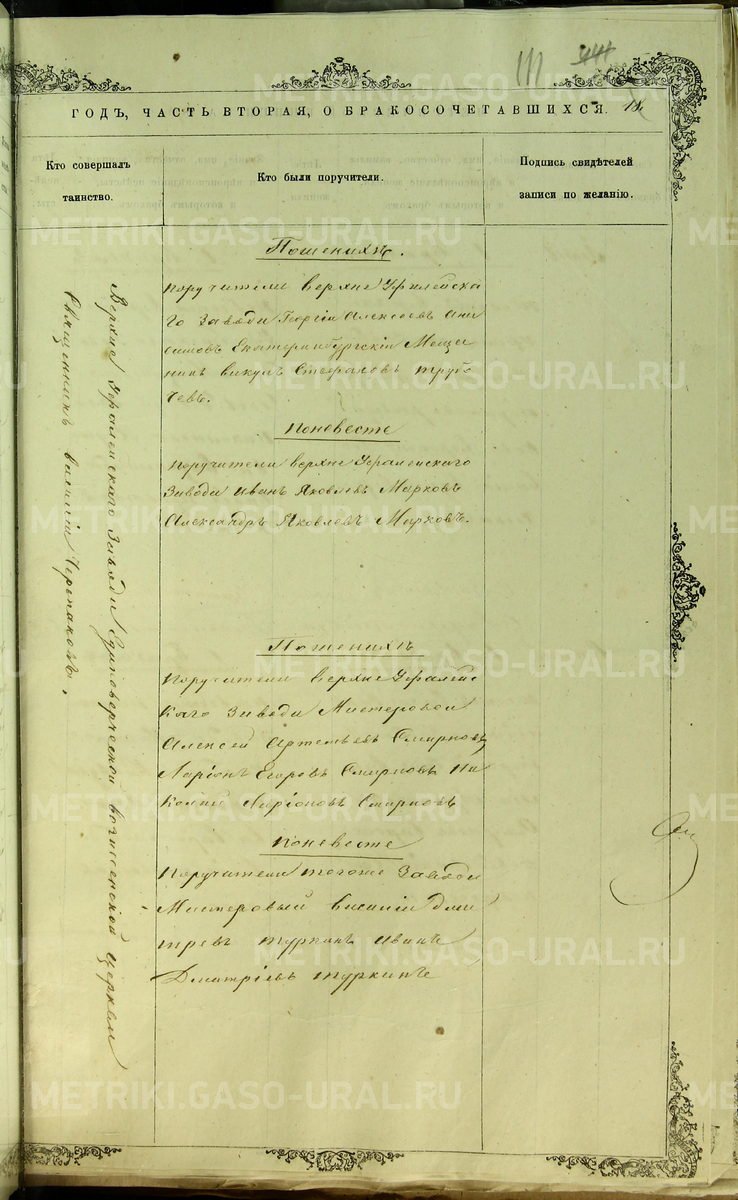 111
ГОДЪ, ЧАСТЬ ВТОРАЯ, О БРАКОСОЧЕТАВШИХСЯ.
Кто совершалъ
таинство.
Кто были поручители.
Подпись свидѣтелей
записи по желанію.
Верхне Уфалейскаго Завода Единоверческой вознесенской Церкви
Священникъ василій Черепановъ.
Поженихѣ.
поручители верхне Уфалейска
го Завода Георгій Алексеевъ Ани
симовъ Екатеринбургскій Меща
нинъ викулъ Стафеевъ трубо
чевъ.
Поневесте
поручители верхне Уфалейскаго
Завода иванъ Яковлевъ Марковъ
Александръ Яковлевъ Марковъ.
Поженихѣ
поручители верхне Уфалейс
каго Завода Мастеровой
Алексей Артемьевъ Смирновъ
Ларіонъ Егоровъ Смирновъ Ни
колай Ларіоновъ Смирновъ
поневесте
Поручители тогоже Завода
Мастеровый василій Дми
тревъ туркинъ иванъ
Дмитріевъ туркинъ
METRIKI.GASO-URAL.RU